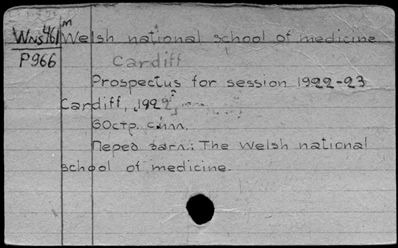 WNs461
P966
m
Welsh national school of medicine
Cardiff
Prospectus for session 1922-23
Cardiff, 1922
60стр. с илл.
Перед загл.: The Welsh national
school of medicine.